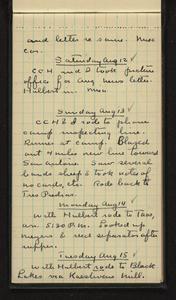 and letter re same. Misc
cor.
Saturday Aug 12
CCH and I took picture
office for Aug news letter.
Hulbert in. Misc.
Sunday Aug 13
CCH & I rode to phone
camp inspecting line.
Runner at camp. Blazed
out studio new line toward
San Antone. Saw several
bands sheep & took notes of
no cards, etc. Rode back to
Tres Piedras.
Monday Aug 14
With Hulbert rode to Taos,
arr. 5:30 P.M. Looked up
Meyers & recd separator after
supper.
Tuesday Aug 15
With Hulbert rode to Black
Lakes via